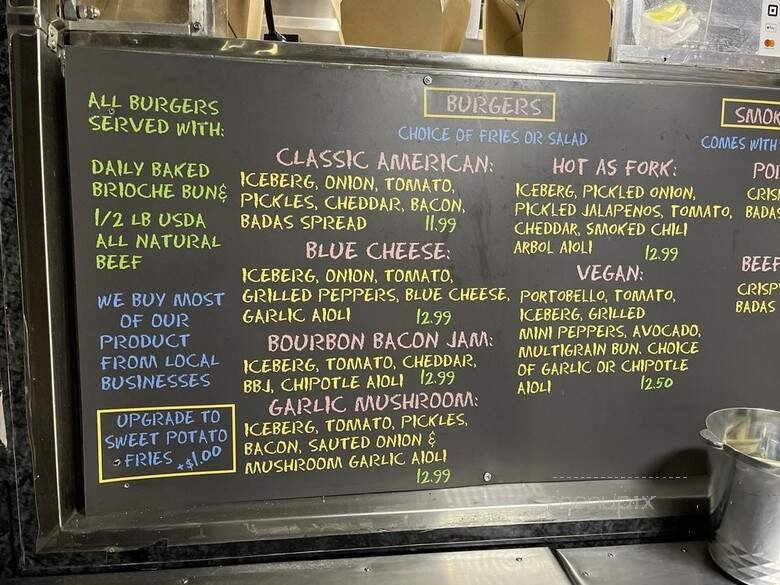 ALL BURGERS
SERVED WITH:
DAILY BAKED
BRIOCHE BUN &
1/2 LB USDA
ALL NATURAL
BEEF
WE BUY MOST
OF OUR
PRODUCT
FROM LOCAL
BUSINESSES
UPGRADE TO
SWEET POTATO
FRIES +$1.00
BURGERS
CHOICE OF FRIES OR SALAD
CLASSIC AMERICAN:
ICEBERG, ONION, TOMATO,
PICKLES, CHEDDAR, BACON,
BADAS SPREAD 11.99
BLUE CHEESE:
ICEBERG, ONION, TOMATO,
GRILLED PEPPERS, BLUE CHEESE,
GARLIC AIOLI 12.99
BOURBON BACON JAM:
ICEBERG, TOMATO, CHEDDAR,
BBJ, CHIPOTLE AIOLI 12.99
GARLIC MUSHROOM:
ICEBERG, TOMATO, PICKLES,
BACON, SAUTED ONION &
MUSHROOM GARLIC AIOLI
12.99
HOT AS FORK:
ICEBERG, PICKLED ONION,
PICKLED JALAPENOS, TOMATO,
CHEDDAR, SMOKED CHILI
ARBOL AIOLI 12.99
VEGAN:
PORTOBELLO, TOMATO,
ICEBERG, GRILLED
MINI PEPPERS, AVOCADO,
MULTIGRAIN BUN. CHOICE
OF GARLIC OR CHIPOTLE
AIOLI 12.50
SMOK
COMES WITH
POI
CRIS
BADAS
BEEF
CRISPY
BADAS